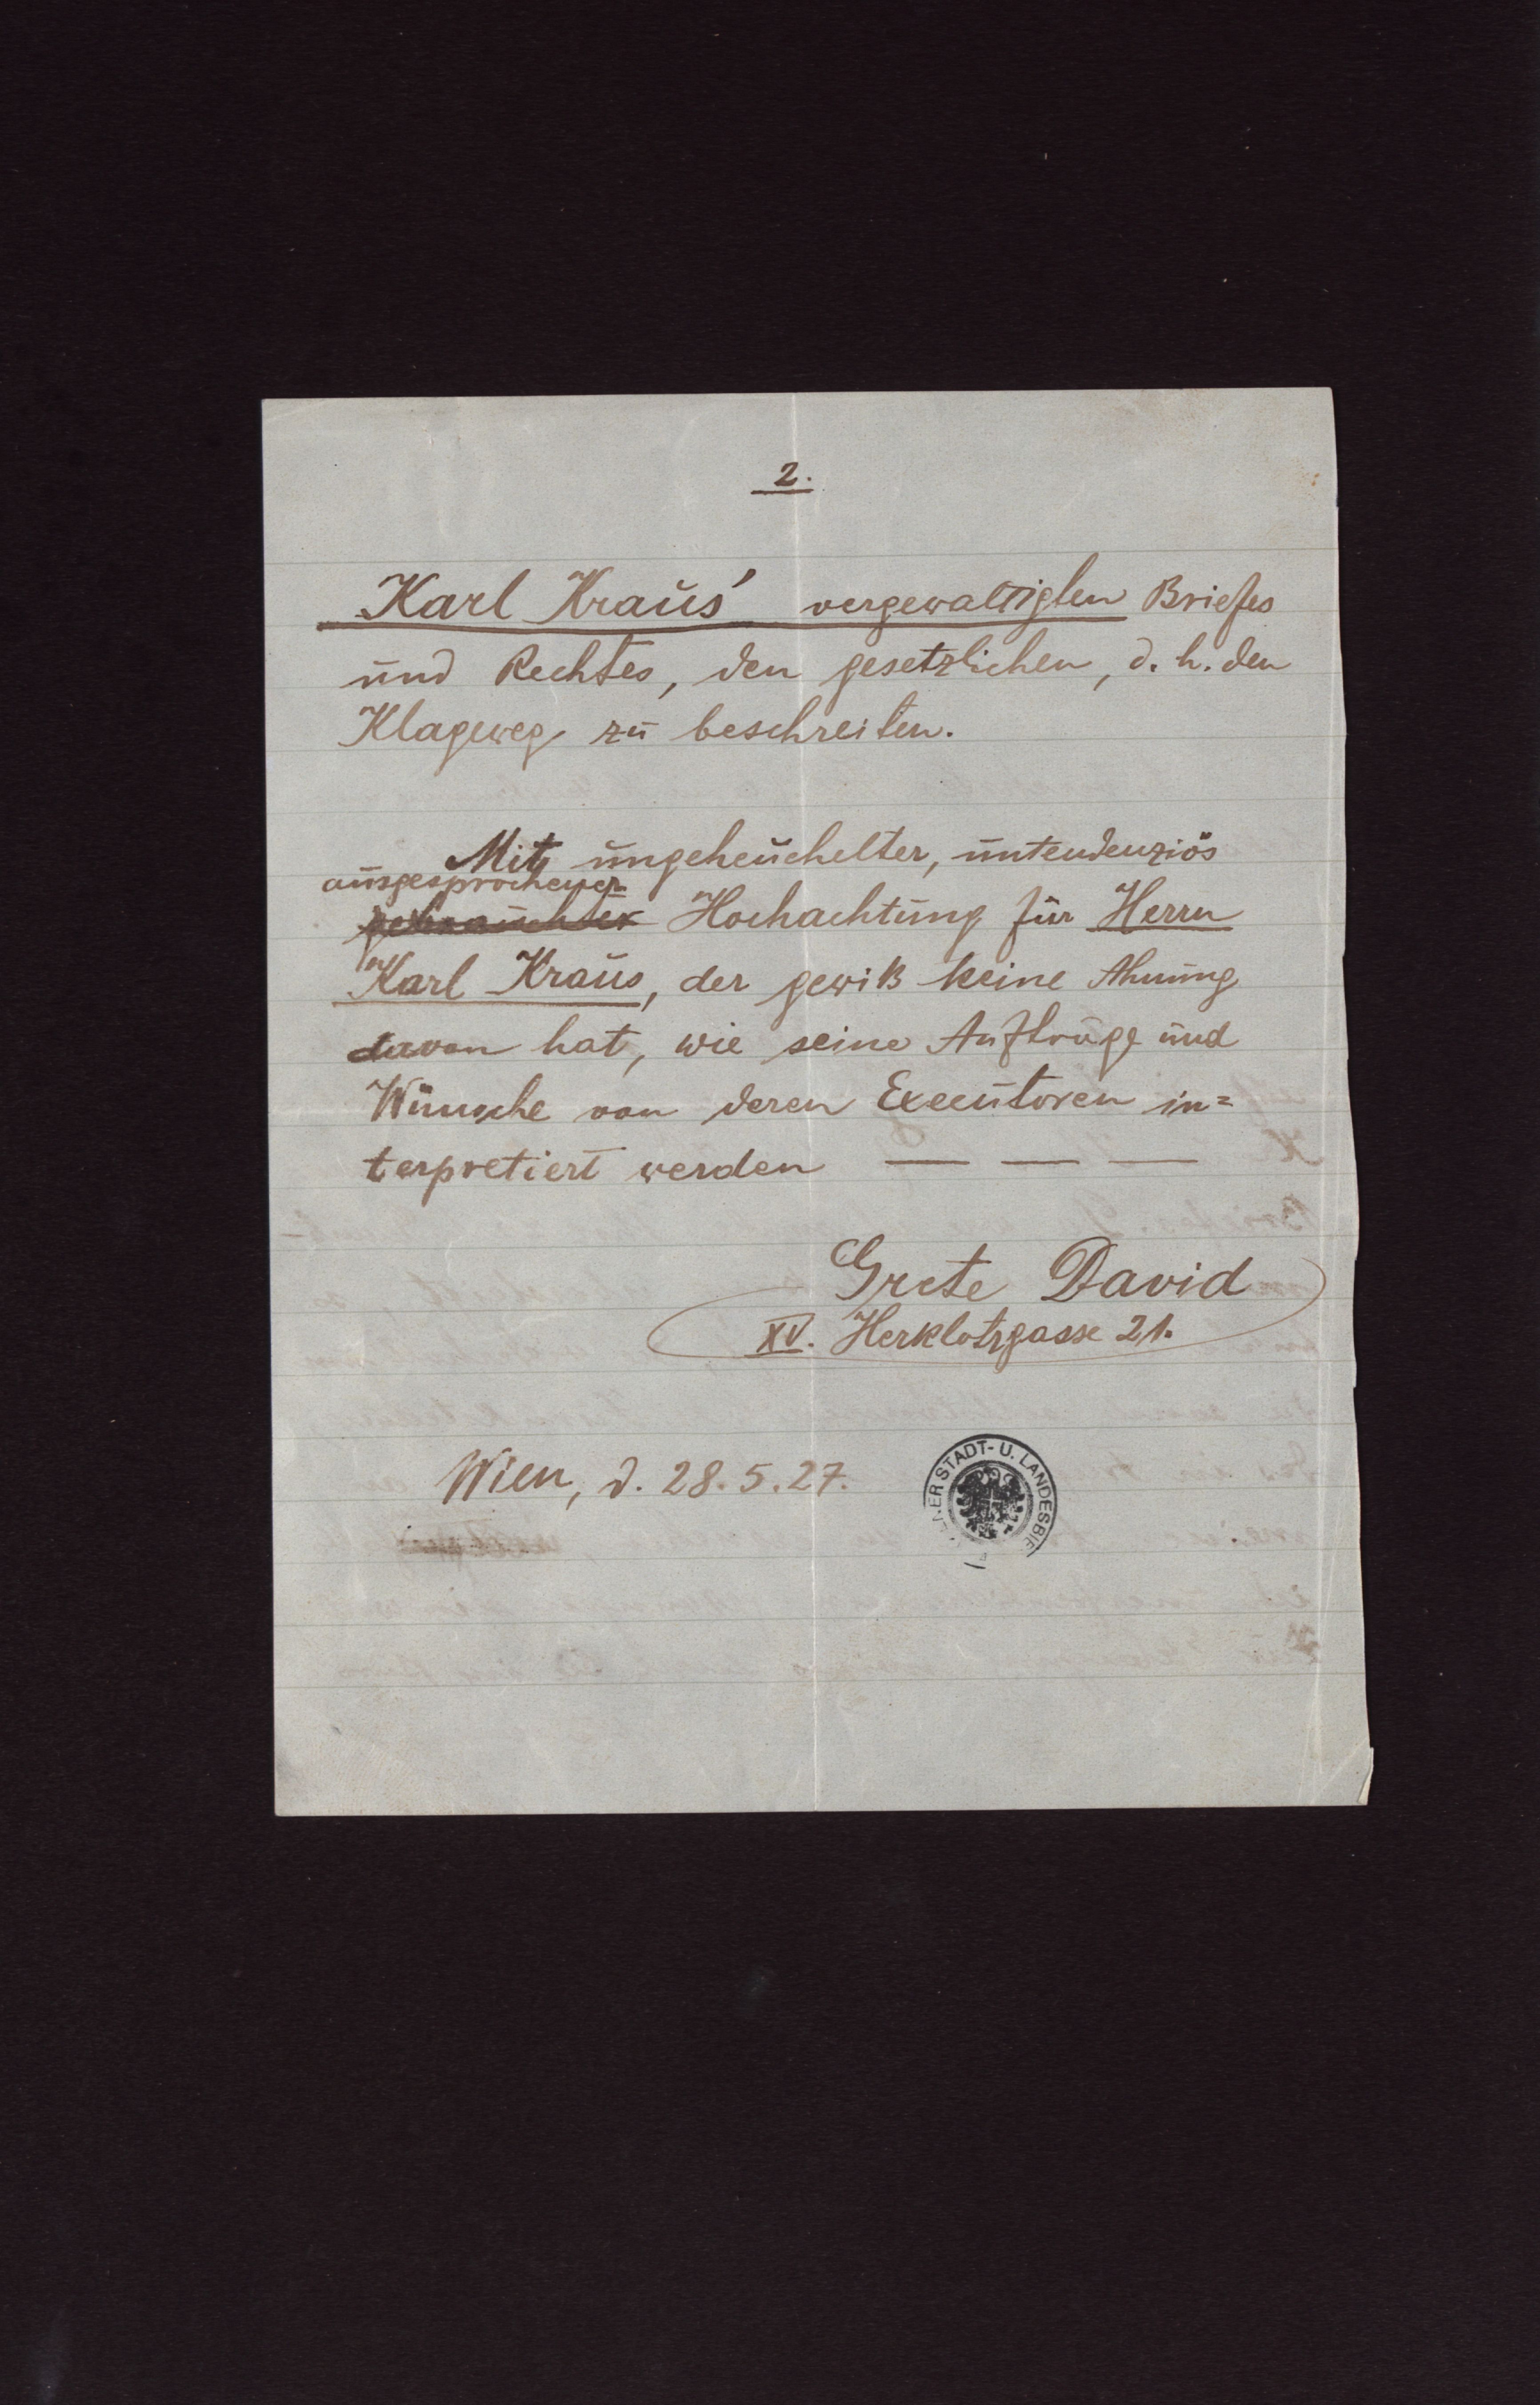 2.
Karl Kraus' vergewaltigten Briefes
und Rechtes, den gesetzlichen, d. h. den
Klageweg zu beschreiten.
Mit ungeheuchelter, untendenziös
ausgesprochener
gebrauchter Hochachtung für Herrn
Karl Kraus, der gewiß keine Ahnung
davon hat, wie seine Aufträge und
Wünsche von deren Executoren in=
terpretiert werden — — —
Grete David
XV. Herklotzgasse 21.
Wien, d. 28.5.27.
STADT- U. LANDESBI